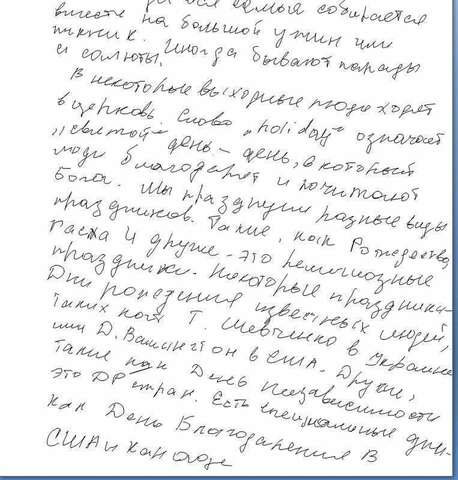 вся семья собирается
вместе на большой ужин или
пикник. Иногда бывают парады
и салюты.
В некоторые выходные люди ходят
в церковь. Слово „holiday" означает
„святой" день – день, в который
люди благодарят и почитают
Бога. Мы празднуем разные виды
праздников. Такие, как Рождество,
Пасха и другие - это религиозные
праздники. Некоторые праздники-
Дни рождения известных людей,
таких как Т. Шевченко в Украине
или Д. Вашингтон в США. Другие,
такие как День независимости
это ДР стран. Есть специальные дни-
как День Благодарения в
США и Канаде